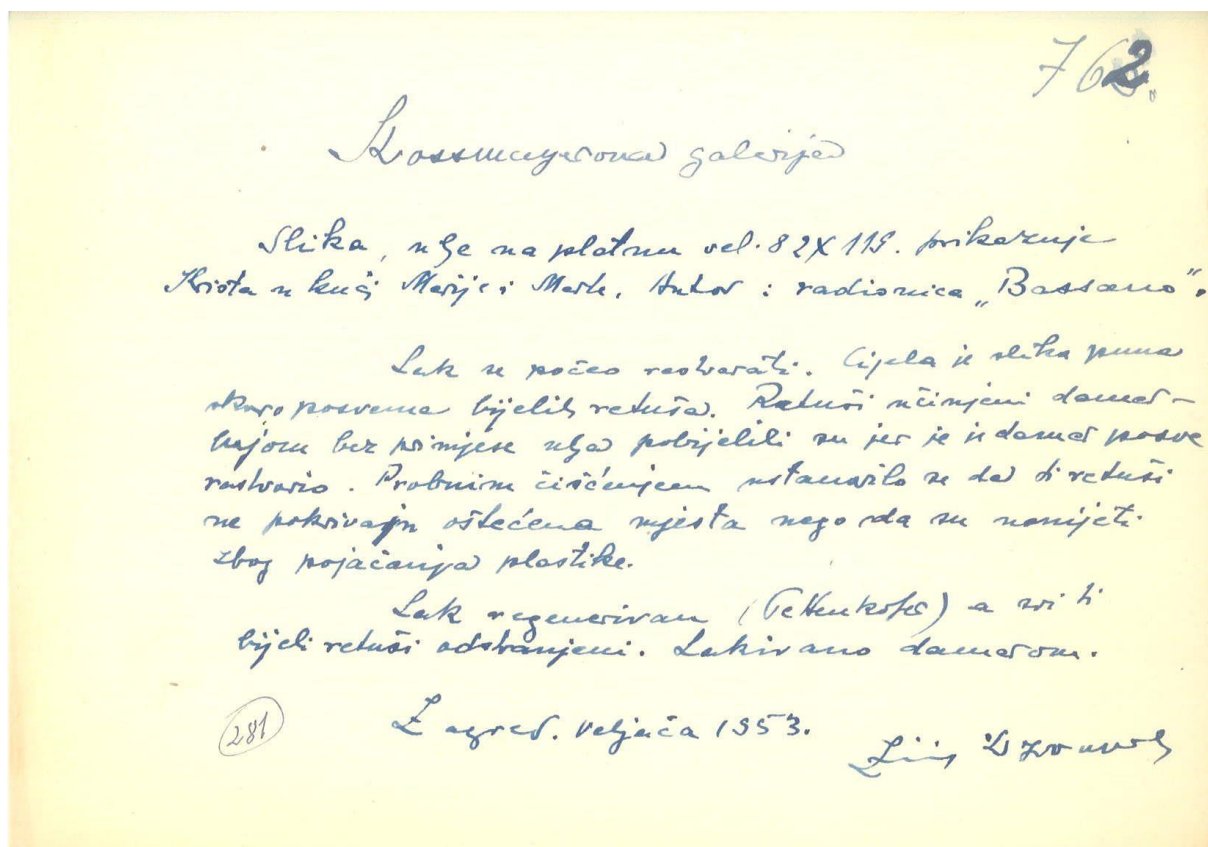 762.
Strossmayerova galerija
Slika, ulje na platnu vel. 82X119. prikazuje
Krista u kući Marije i Marte. Autor : radionica „Bassano".
Lak se počeo rastvarati. Cijela je slika puna
skoro posvema bijelih retuša. Retuši učinjeni damar-
bojom bez primjese ulja pobijelili su jer je se damar posve
rastvorio. Probnim čišćenjem ustanovilo se da ti retuši
ne pokrivaju oštećena mjesta nego da su nanijeti
zbog pojačanja plastike.
Lak regeneriran (Pettenkofer) a svi ti
bijeli retuši odstranjeni. Lakirano damarom.
281
Zagreb. Veljača 1953.